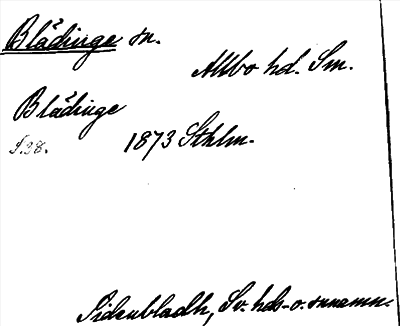 Blädinge sn.
Allbo hd. Sm.
Blädinge
S.28. 1873 Sthlm.
Sidenbladh, Sv. hds- o. snnamn.